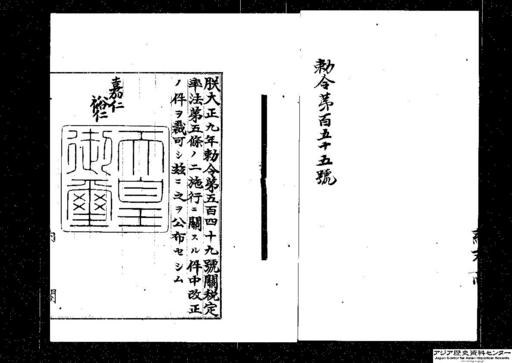 勅令第百五十五號
朕大正九年勅令第五百四十九號關税定
率法第五條ノ二施行ニ關スル件中改正
ノ件ヲ裁可シ玆ニ之ヲ公布セシム
嘉仁
裕仁
天皇
御璽
内 閣
アジア歴史資料センター
Japan Center for Asian Historical Records